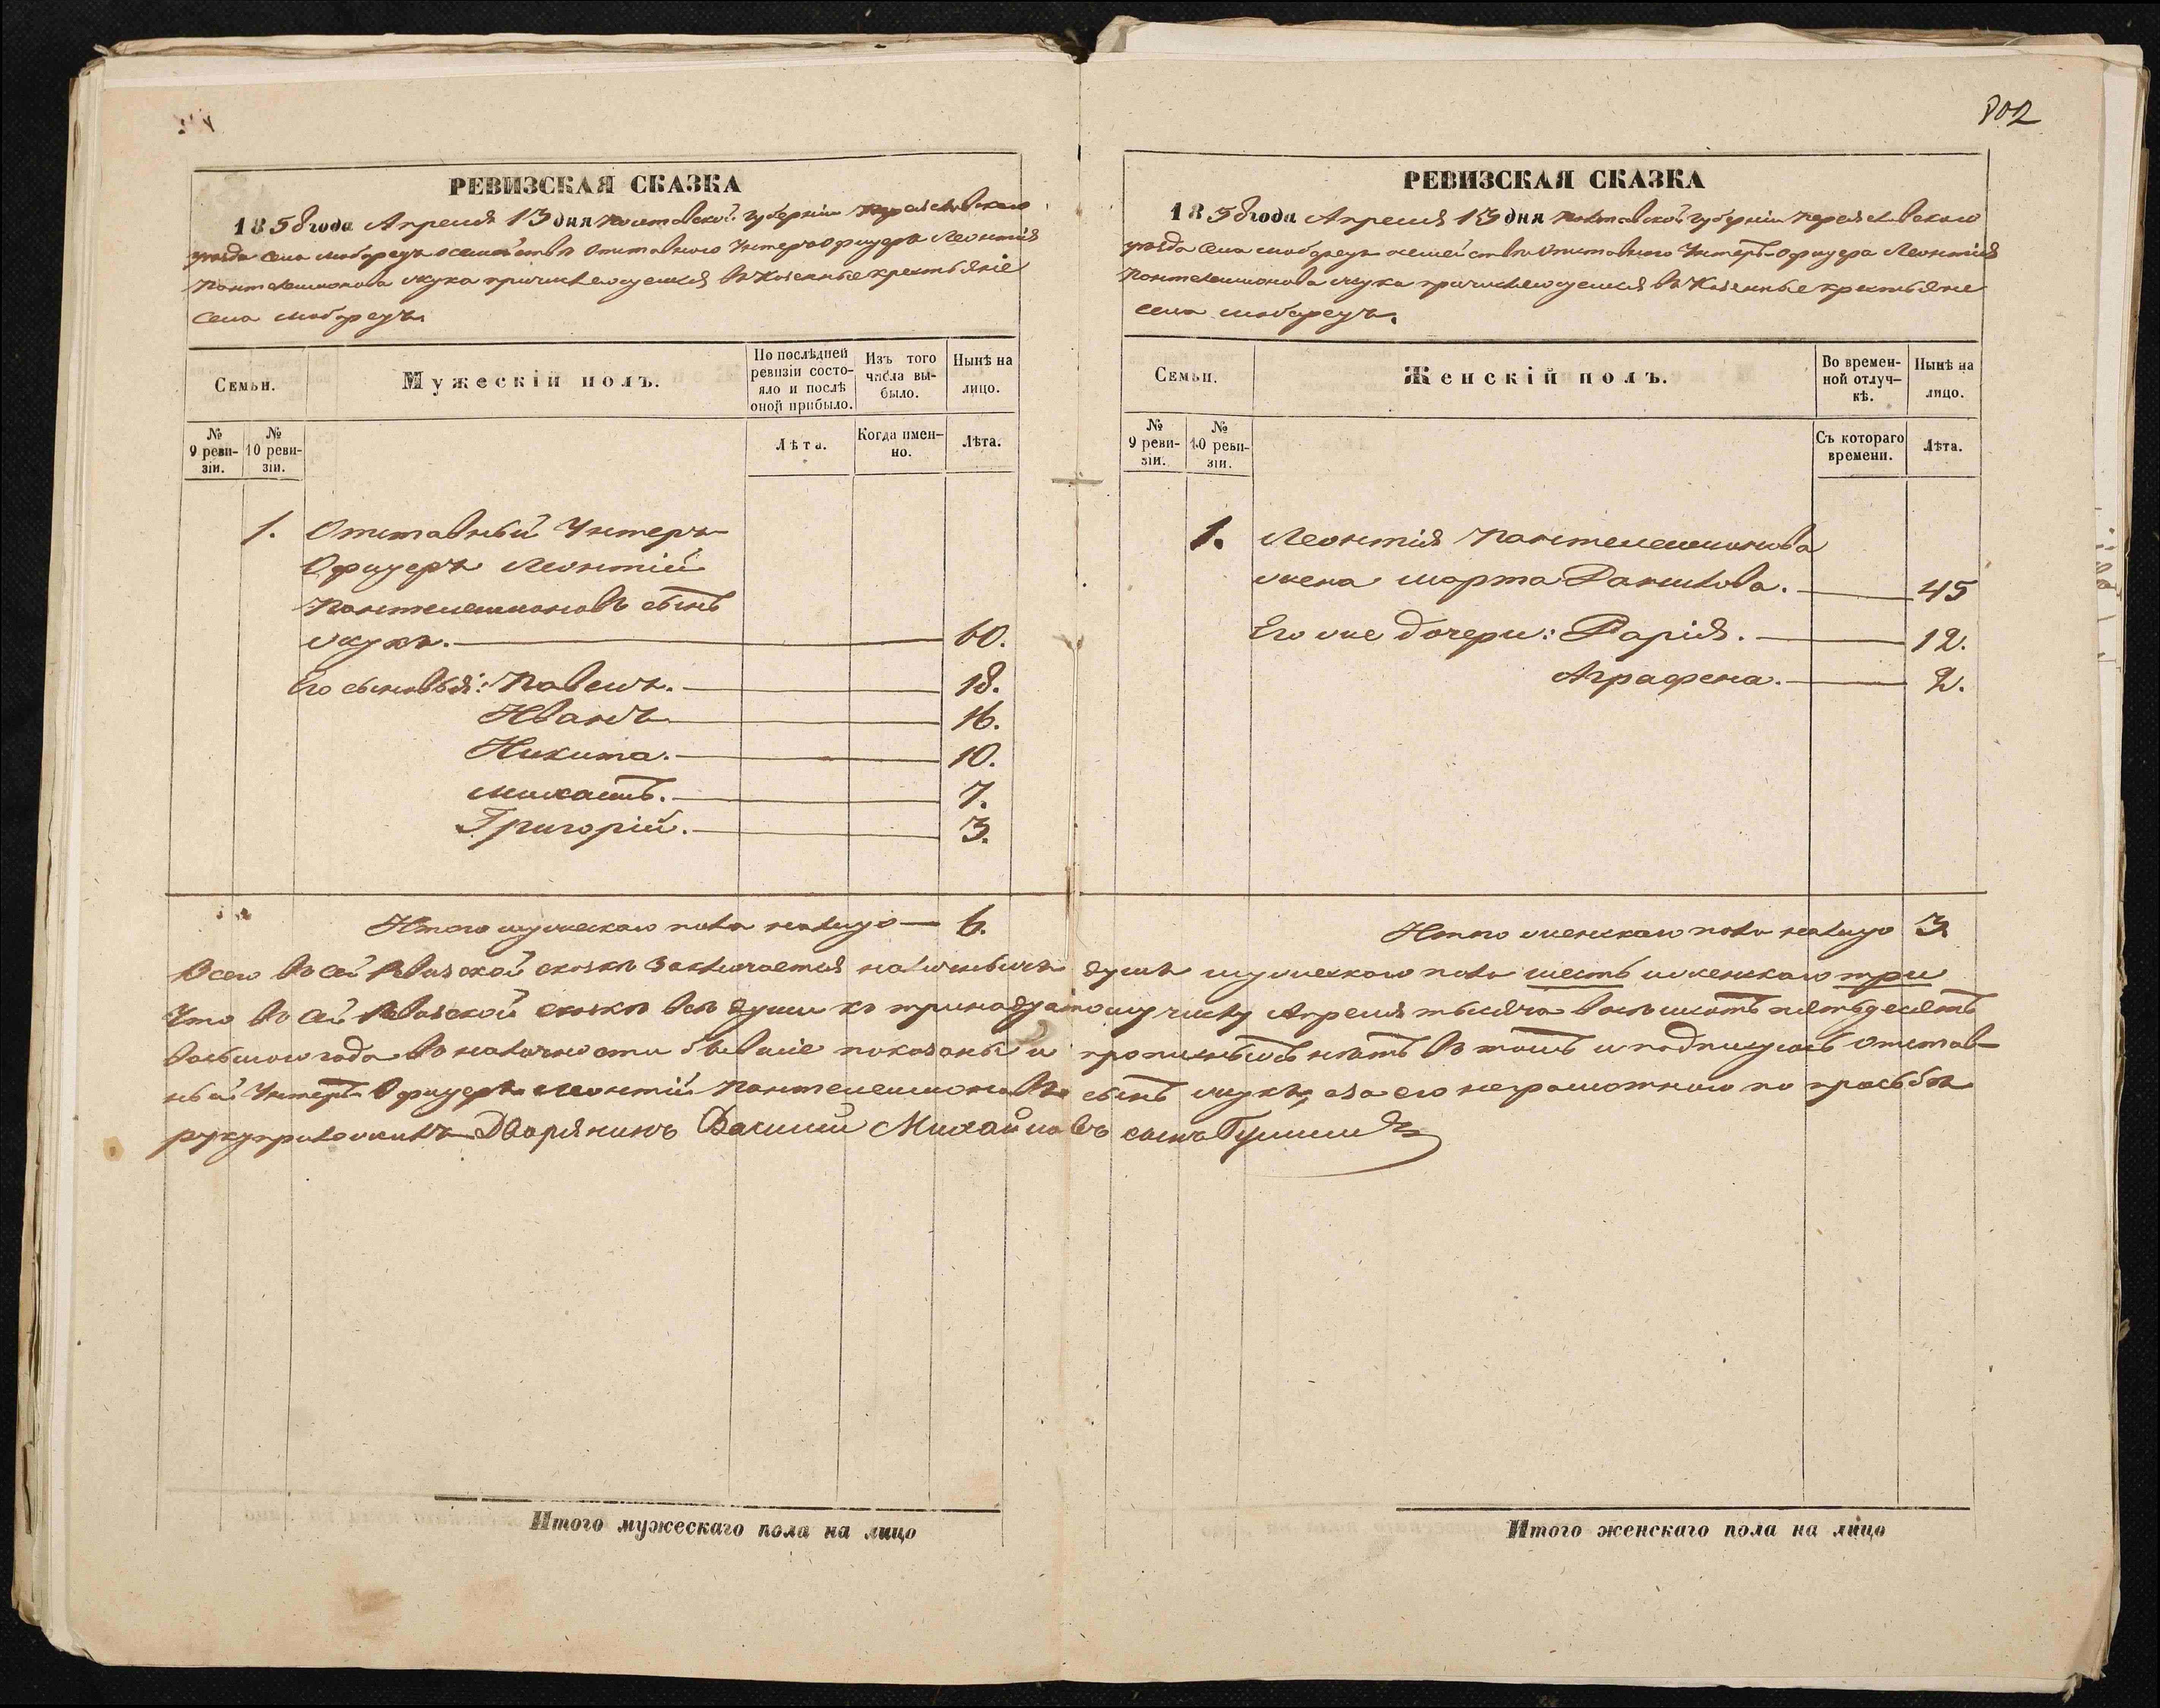 802
РЕВИЗСКАЯ СКАЗКА
1858 года Апреля 13 дня Полтавской губерніи Переяславскаго
уезда села о семействе Отставного Унтеръ Офицера Леонтія
Пантелеимонова Жука причисляющемся въ Казенные крестьяне
села
Семьи.
Мужескій полъ.
По послѣдней ревизіи состо-
яло и послѣ оной прибыло.
Изъ того числа вы-
было.
Нынѣ на лицо.
№ 9 реви-
зіи.
№ 10 реви-
зіи.
Лѣта.
Когда имен-
но.
Лѣта.
1. Отставный Унтеръ
Офицеръ Леонтій
Пантелеимоновъ сынъ
Жукъ. 60.
Его сыновья: Павелъ. 18.
Иванъ 16.
Никита. 10.
Михаилъ. 7.
Григорій. 3.
Итого мужескаго пола налицо 6.
РЕВИЗСКАЯ СКАЗКА
1858 года Апреля 13 дня Полтавской губерніи Переяславскаго
уезда села о семействе Отставного Унтеръ-Офицера Леонтія
Пантелеимонова Жука причисляющемся въ Казенные крестьяне
села
Семьи.
Женскій полъ.
Во времен-
ной отлуч-
кѣ.
Нынѣ на лицо.
№ 9 реви-
зіи.
№ 10 реви-
зіи.
Съ котораго времени.
Лѣта.
1. Леонтія Пантелеимонова
жена Марта Данилова. 45
Его же дочери: Дарія. 12.
Аграфена. 2.
Итого женскаго пола налицо 3.
Всего въ сей Ревизской сказке заключается наличныхъ душъ мужескаго пола шесть и женскаго три
Что въ сей Ревизской сказке все души къ тринадцатому числу Апреля тысяча восемьсотъ пятьдесятъ
восьмого года въ наличности бывшіе показаны и прописныхъ нетъ въ томъ и подписуюсь отстав-
ный Унтеръ Офицеръ Леонтій Пантелеимоновъ сынъ Жукъ, а за его неграмотного по просьбе
руку приложилъ Дворянинъ Василий Михайловъ сынъ
Итого мужескаго пола на лицо
Итого женскаго пола на лицо